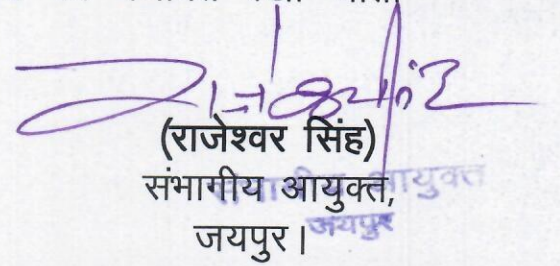 (राजेश्वर सिंह)
संभागीय आयुक्त,
जयपुर।
संभागीय आयुक्त
जयपुर